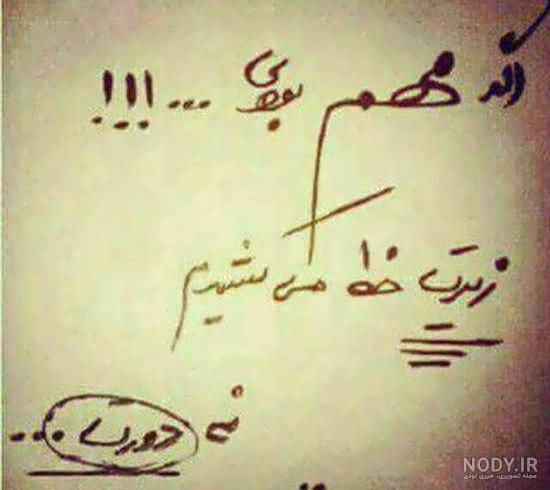 اگه مهم بودی ... !!!
زیرت خط می کشیدم
نه دورت ...
NODY.IR
مجله تصویری، خبری نودی